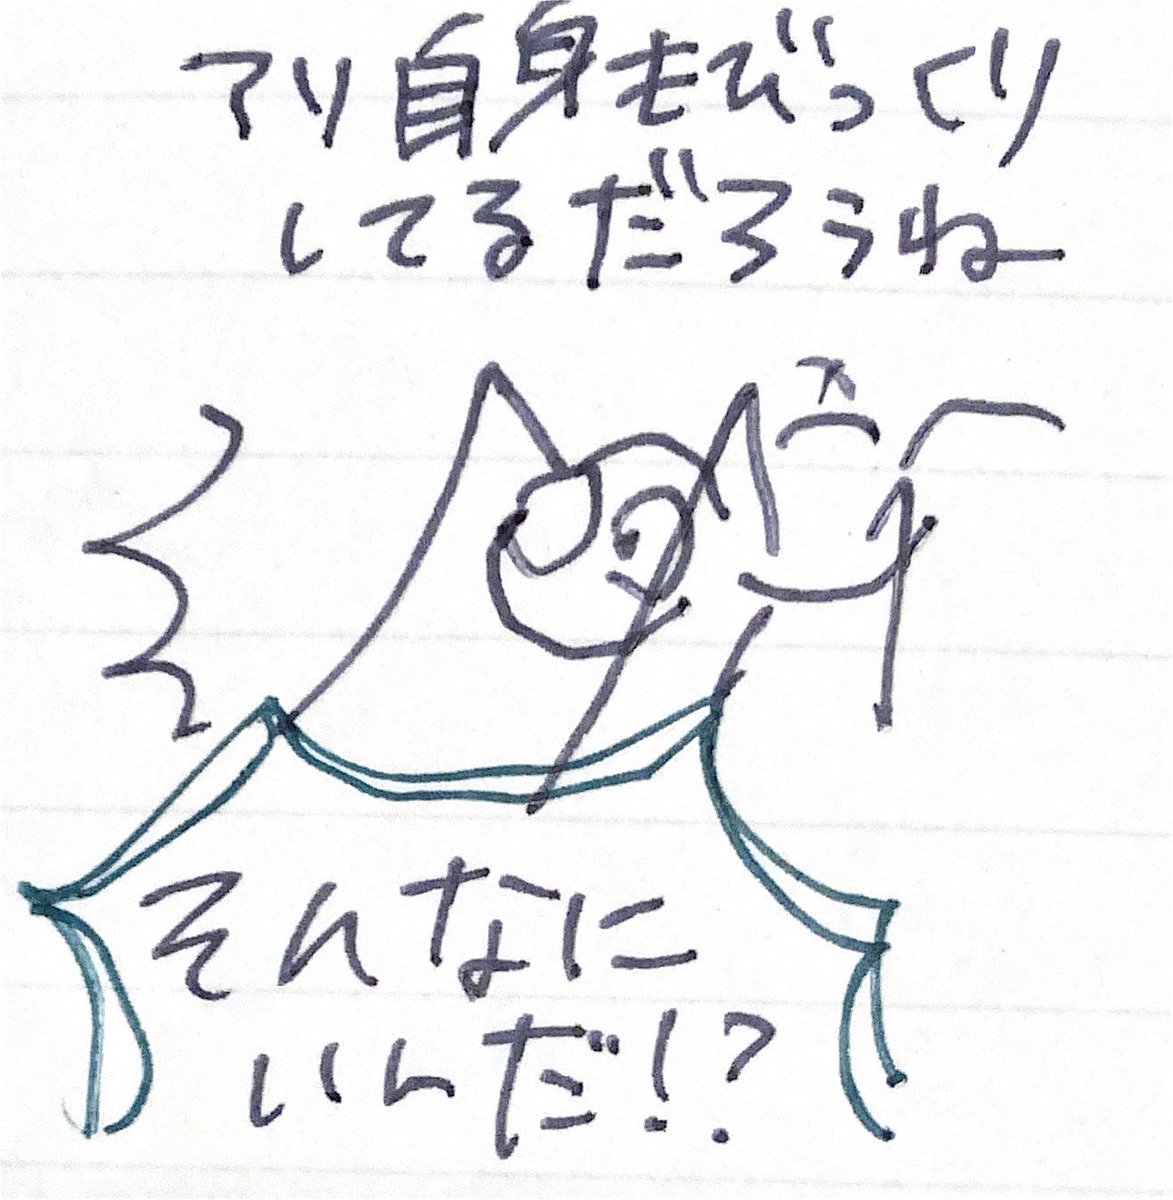 アリ自身もびっくり
してるだろうね
そんなに
いんだ!?